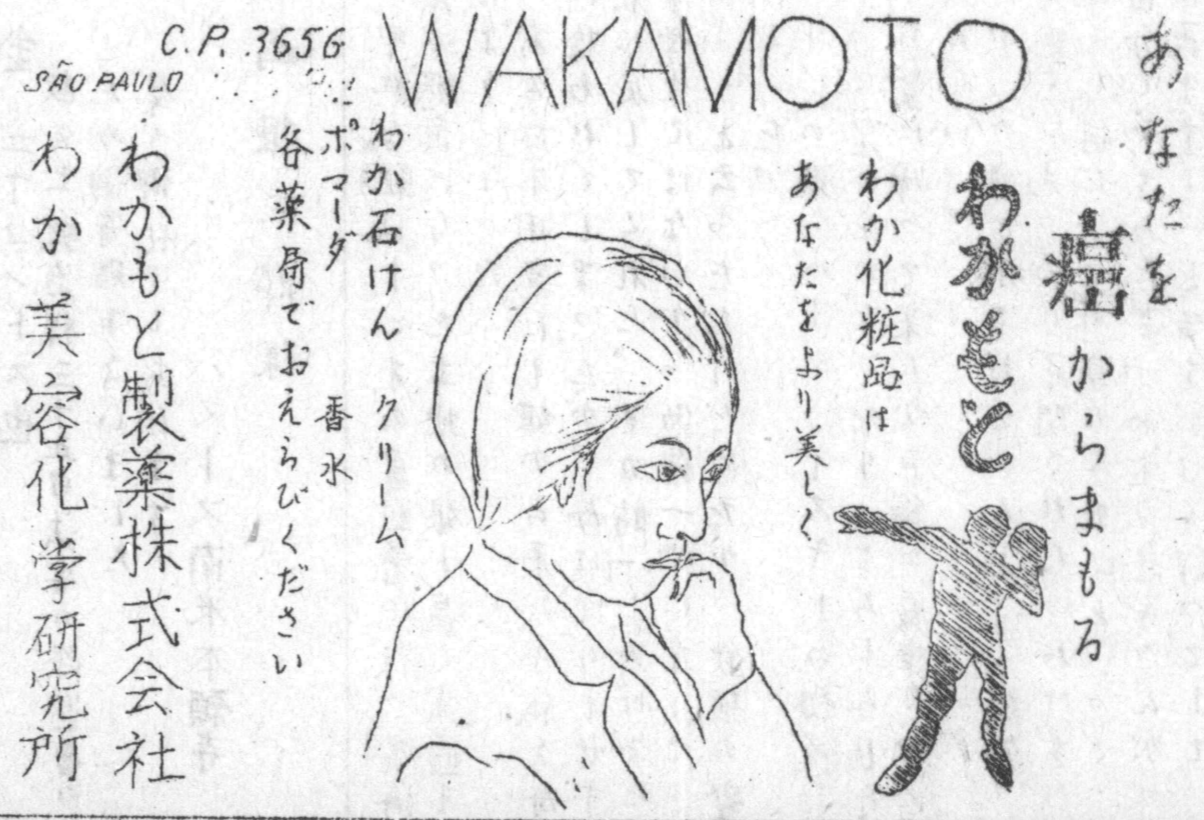 WAKAMOTO
あなたを
癌からまもる
わかもと
わか化粧品は
あなたをより美しく
わか石けん クリーム
ポマーダ 香水
各薬局でおえらびください
C.P. 3656
SÃO PAULO
わかもと製薬株式会社
わか美容化学研究所